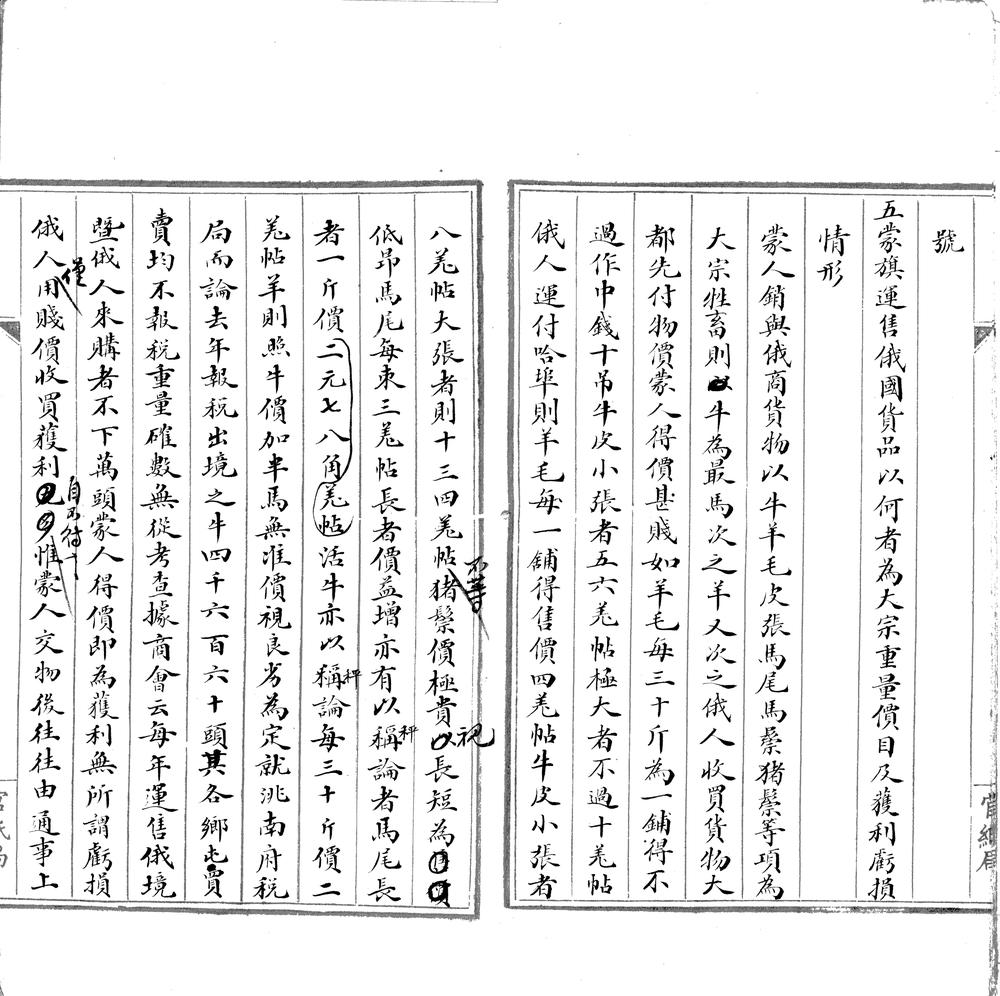 號
五蒙旗運售俄國貨品以何者為大宗重量價目及獲利虧損
情形
蒙人銷與俄商貨物以牛羊毛皮張馬尾馬鬃猪鬃等項為
大宗牲畜則牛為最馬次之羊又次之俄人收買貨物大
都先付物價蒙人得價甚賤如羊毛每三十斤為一鋪得不
過作中錢十吊牛皮小張者五六羌帖極大者不過十羌帖
俄人運付哈埠則羊毛每一舖得售價四羌帖牛皮小張者
八羌帖大張者則十三四羌帖不等猪鬃價極貴視長短為
低昂馬尾每束三羌帖長者價益增亦有以稱秤論者馬尾長
者一斤價二元七八角羌帖活牛亦以稱秤論每三十斤價二
羌帖羊則照牛價加半馬無准價視良劣為定就洮南府稅
局而論去年報稅出境之牛四千六百六十頭其各鄉屯買
賣均不報稅重量確數無從考查據商會云每年運售俄境
暨俄人來購者不下萬頭蒙人得價即為獲利無所謂虧損
俄人僅用賤價收買獲利自不待惟蒙人交物後往往由通事上